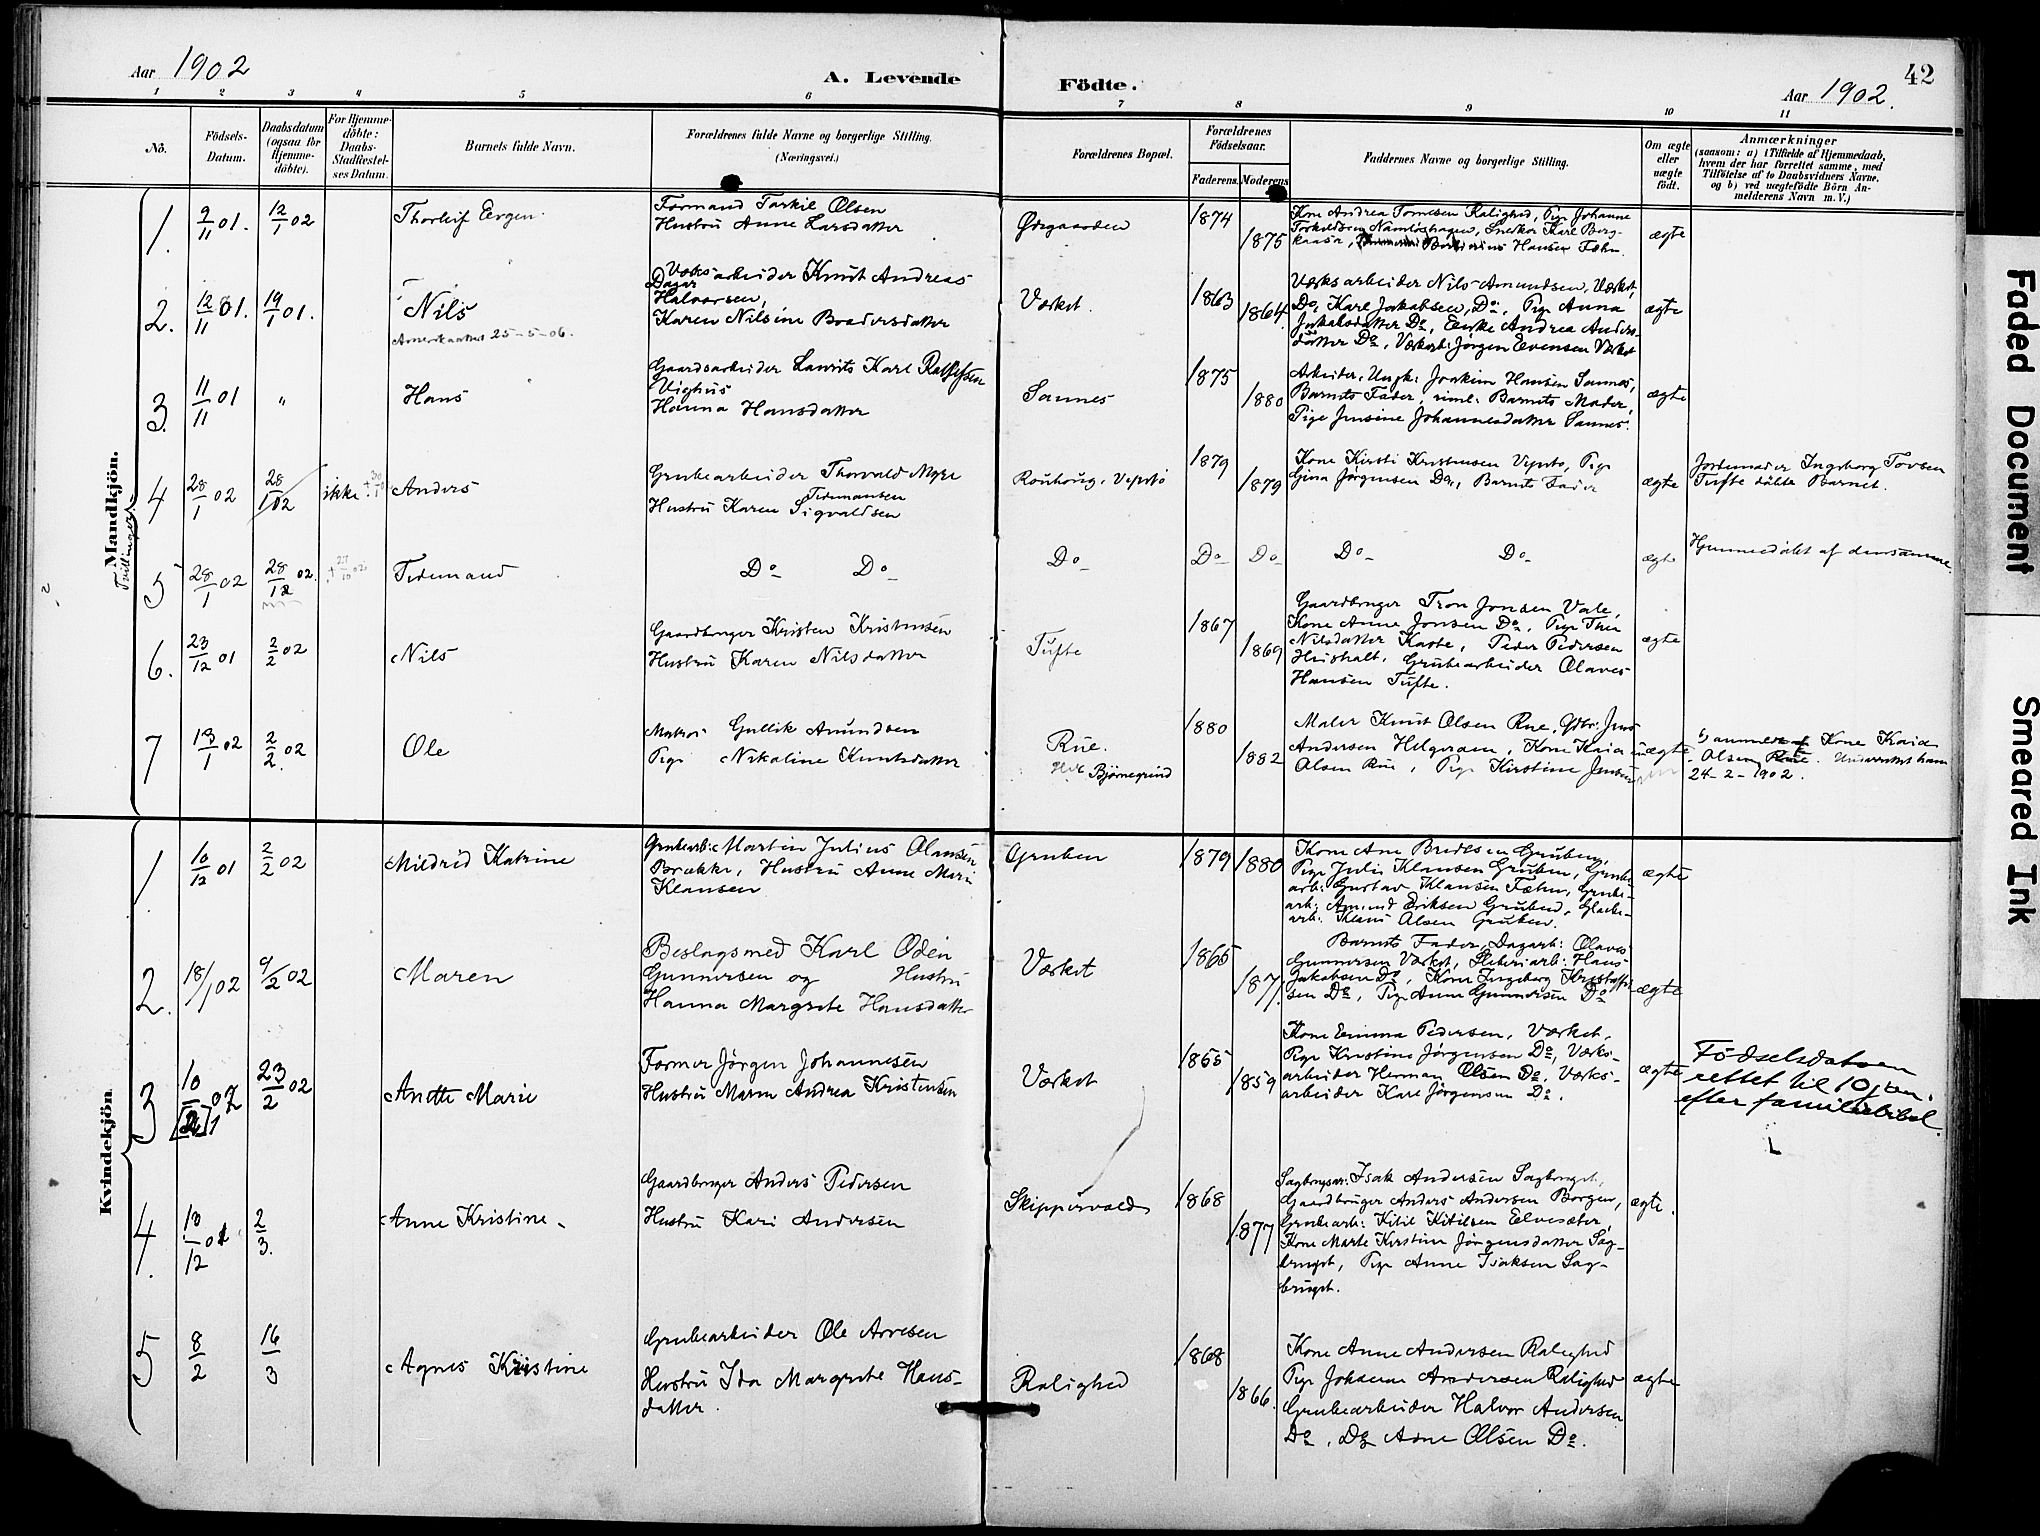 Aar 1902
A. Levende
Födte.
Aar 1902.
42
1 2 3 4 5 6 7 8 9 10 11
Nö.
Födsels-
Datum.
Daabsdatum
(ogsaa for
Hjemme-
döbte).
For Hjemme-
döbte:
Daabs-
Stadfæstel-
ses Datum.
Barnets fulde Navn.
Forældrenes fulde Navne og borgerlige Stilling.
(Næringsvei.)
Forældrenes Bopæl.
Forældrenes
Födselsaar.
Faderens. Moderens
Faddernes Navne og borgerlige Stilling.
Om ægte
eller
uægte
födt.
Anmærkninger
(saasom: a) i Tilfælde af Hjemmedaab,
hvem der har forrettet samme, med
Tilföielse af to Daabsvidners Navne.
og b) ved uægtefödte Börn An-
melderens Navn m. V.)
Mandkjön.
Tvillinger
1. 9/11 01. 12/1 02
Thorleif
Formand Torkil Olsen
Hustru Anne Larsdatter
Ødegaarden
1874
1875
Kone Andrea Tomesen Ralighed, Pige Johanne
Snedker Karl Berg-
Hansen
ægte
2. 12/11 01. 19/1 01.
Nils
25-5-06.
Værksarbeider Knut Andreas
Halvorsen,
Karen Nilsine
Værket.
1863
1864
Værksarbeider Nils Amundsen, Værket,
Do, Karl Jakobsen, Do, Pige Anna
Jakobsdatter Do, Enke Andrea Anders-
datter Do, Værksarb: Jørgen Evensen Værket
ægte
3. 11/11 01 "
Hans
Gaardsarbeider Laurits Karl
Vighus
Hanna Hansdatter
Sannes
1875
1880
Arbeider, Ungk: Joakim Hansen Sannes,
Barnets Fader, Barnets Moder,
Pige Jensine Johannesdatter Sannes.
ægte
4 28/1 02 28/1 02 ikke
Anders
Grubearbeider Thorvald Myre
Tidemansen
Hustru Karen Sigvaldsen
1879
1879
Kone Kirsti Kristensen Pige
Gina Jørgensen Do, Barnets Fader
ægte
Jordemoder Ingeborg Tovsen
Tufte døbte Barnet.
5 28/1 02 28/12 02.
Tidemand
Do Do
Do
Do Do
Do Do
ægte
Hjemmedøbt af densamme.
6. 23/12 01 2/2 02
Nils
Gaardbruger Kristen Kristensen
Hustru Karen Nilsdatter
Tufte
1867
1869
Gaardbruger Tron Jonsen Vale,
Kone Anne Jonsen Do, Pige
Nilsdatter Peder Pedersen
Grubearbeider Olaves
Hansen Tufte.
ægte
7 13/1 02 2/2 02
Ole
Gullik Amundsen
Pige Nikoline Knutsdatter
Rue.
Bjørnegrind
1880
1882
Maler Knut Olsen Rue, Gdbr: Jens
Andersen Helgeraen, Kone Kaia
Olsen Rue, Pige Kirstine Jensen
uægte
Kone Kaia
Olsen Rue.
24-2-1902.
Kvindekjön.
1 10/12 01 2/2 02
Mildrid Katrine
Grubearb: Martin Julius Olausen
Brække, Hustru Anne Marie
Klausen
Gruben
1879
1880
Pige Julie Klausen Gruben, Grube-
arb: Gustav Klausen
arb: Amund Eriksen
arb: Klaus Olsen Gruben.
ægte
2. 18/1 02 9/2 02
Maren
Beslagsmed Karl Odin
Gunnersen og Hustru
Hanna Margrete Hansdatter
Værket
1865
187
Barnets Fader, Dagarb: Olaves
Gunnersen Værket, Hans
Jakobsen Do, Kone Ingeborg Kristoffer-
sen Do, Pige Anne Gunnersen Do
ægte
3 10/1 02 23/2 02
Anette Marie
Former Jørgen Johannesen
Hustru Maren Andrea Kristensen
Værket
1855
1859
Kone Emma Pedersen, Værket,
Pige Kristine Jørgensen Do, Værks-
arbeider Herman Olsen Do, Værks-
arbeider Karl Jørgensen Do.
ægte
Fødselsdatoen
rettet til 10 jan.
efter familiebibel.
4. 13/12 01 2/3.
Anne Kristine
Gaardbruger Anders Pedersen
Hustru Kari Andersen
Skippervold
1868
1877
Isak Andersen Sagbruget,
Gaardbruger Anders Andersen Borgen,
Grubearb: Kitil Kitilsen
Kone Marte Kirstine Jørgensdatter Sag-
bruget, Pige Anne Isaksen Sag-
bruget.
ægte.
5 8/2 16/3
Agnes Kristine
Grubearbeider Ole Arvesen
Hustru Ida Margrete Hans-
datter.
Ralighed
1868
1866.
Kone Anne Andersen Ralighed
Pige Johanne Andersen Ralighed
Grubearbeider Halvor Andersen
Do, Do Arne Olsen Do.
ægte
Faded Document
Smeared Ink